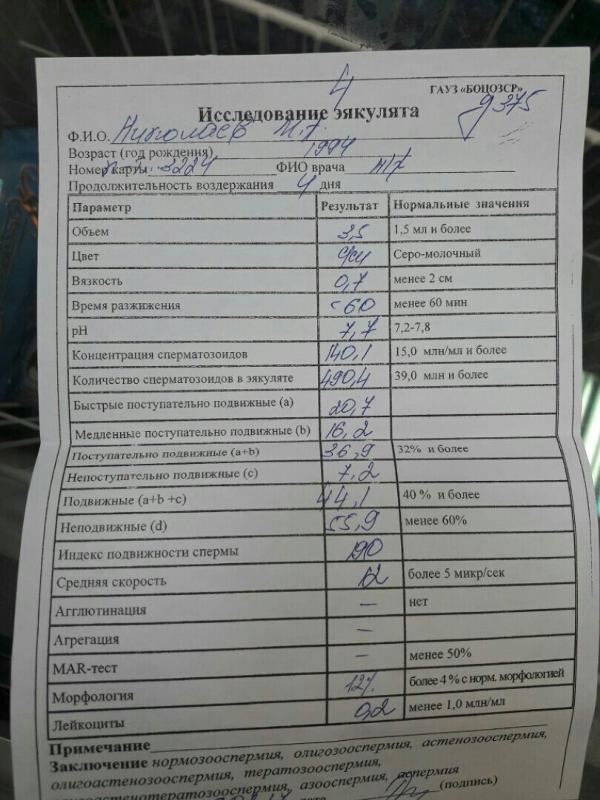 4
ГАУЗ «БОЦОЗСР»
Исследование эякулята
д 375
Ф.И.О. Николаев М.Г.
Возраст (год рождения) 1994
Номер карты 3224 ФИО врача
Продолжительность воздержания 4 дня
Параметр Результат Нормальные значения
Объем 3,5 1,5 мл и более
Цвет Серо-молочный
Вязкость 0,7 менее 2 см
Время разжижения <60 менее 60 мин
pH 7,7 7,2-7,8
Концентрация сперматозоидов 140,1 15,0 млн/мл и более
Количество сперматозоидов в эякуляте 490,4 39,0 млн и более
Быстрые поступательно подвижные (a) 20,7
Медленные поступательно подвижные (b) 16,2
Поступательно подвижные (a+b) 36,9 32% и более
Непоступательно подвижные (c) 7,2
Подвижные (a+b +c) 44,1 40 % и более
Неподвижные (d) 55,9 менее 60%
Индекс подвижности спермы 190
Средняя скорость 12 более 5 микр/сек
Агглютинация – нет
Агрегация –
MAR-тест – менее 50%
Морфология 12% более 4 % с норм. морфологией
Лейкоциты 0,2 менее 1,0 млн/мл
Примечание
Заключение нормозооспермия, олигозооспермия, астенозооспермия,
олигоастенозооспермия, тератозооспермия,
олигоастенотератозооспермия, азооспермия, аспермия
дата (подпись)